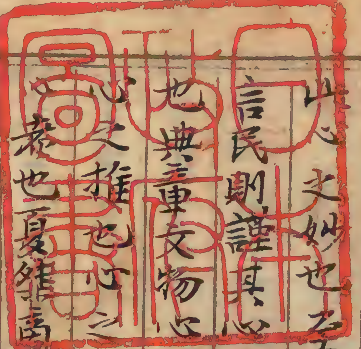 此心之妙也至
言民則謹其心
也典章文物心
心之推也心之
者也夏桀商